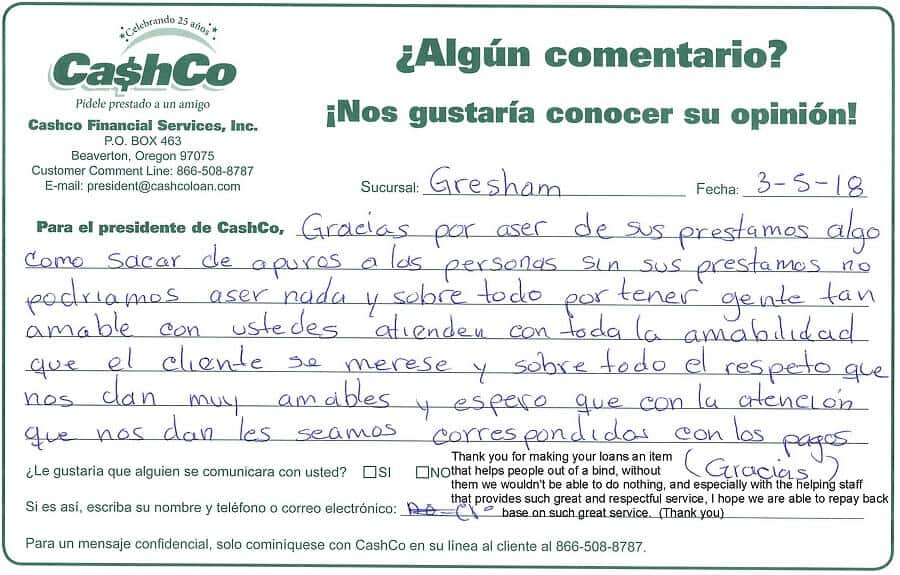 Celebrando 25 años
Ca$hCo
Pídele prestado a un amigo
Cashco Financial Services, Inc.
P.O. BOX 463
Beaverton, Oregon 97075
Customer Comment Line: 866-508-8787
E-mail: president@cashcoloan.com
¿Algún comentario?
¡Nos gustaría conocer su opinión!
Sucursal: Gresham Fecha: 3-5-18
Para el presidente de CashCo, Gracias por aser de sus prestamos algo
como sacar de apuros a las personas sin sus prestamos no
podriamos aser nada y sobre todo por tener gente tan
amable con ustedes atienden con toda la amabilidad
que el cliente se merese y sobre todo el respeto que
nos dan muy amables y espero que con la atención
que nos dan les seamos correspondidos con los pagos
(Gracias)
¿Le gustaria que alguien se comunicara con usted? SI NO
Thank you for making your loans an item
that helps people out of a bind, without
them we wouldn't be able to do nothing, and especially with the helping staff
that provides such great and respectful service, I hope we are able to repay back
base on such great service. (Thank you)
Si es así, escriba su nombre y teléfono o correo electrónico:
Para un mensaje confidencial, solo cominiquese con CashCo en su linea al cliente al 866-508-8787.